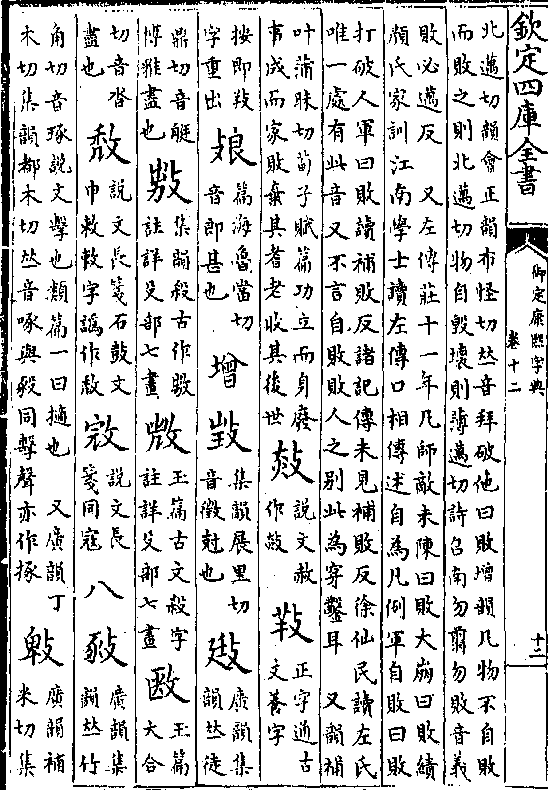 欽定四庫全書
御定康熙字典
卷十二
十二
北邁切韻會正韻布怪切𠀤音拜破他曰敗增韻凡物不自敗
而敗之則北邁切物自毀壞則薄邁切詩召南勿翦勿敗音義
敗必邁反 又左傳莊十一年凡師敵未陳曰敗大崩曰敗績
顔氏家訓江南學士讀左傳口相傳述自為凡例軍自敗曰敗
打破人軍曰敗讀補敗反諸記傳未見補敗反徐仙民讀左氏
唯一處有此音又不言自敗敗人之别此為穿鑿耳 又韻補
叶蒲昧切荀子賦篇功立而身廢
事成而家敗棄其耆老收其後世
𢼜
說文赦
作𢼜
𢼝
正字通古
文養字
按即𢼝
字重出
㪟
篇海魯當切
音郎甚也
增
𢾫
集韻展里切
音徵㪃也
𢻳
廣韻集
韻𠀤徒
鼎切音艇
博雅盡也
𢽅
集韻殺古作𢽅
註詳殳部七畫
𢼛
玉篇古文殺字
註詳殳部七畫
㪉
玉篇
大合
切音沓
盡也
𢼒
說文長箋石鼓文
巾敕敕字譌作𢼒
㓂
說文長
箋同寇
八
㪐
廣韻集
韻𠀤竹
角切音琢說文擊也類篇一曰擿也 又廣韻丁
木切集韻都木切𠀤音啄與㱿同擊聲亦作㧻
㪏
廣韻補
米切集